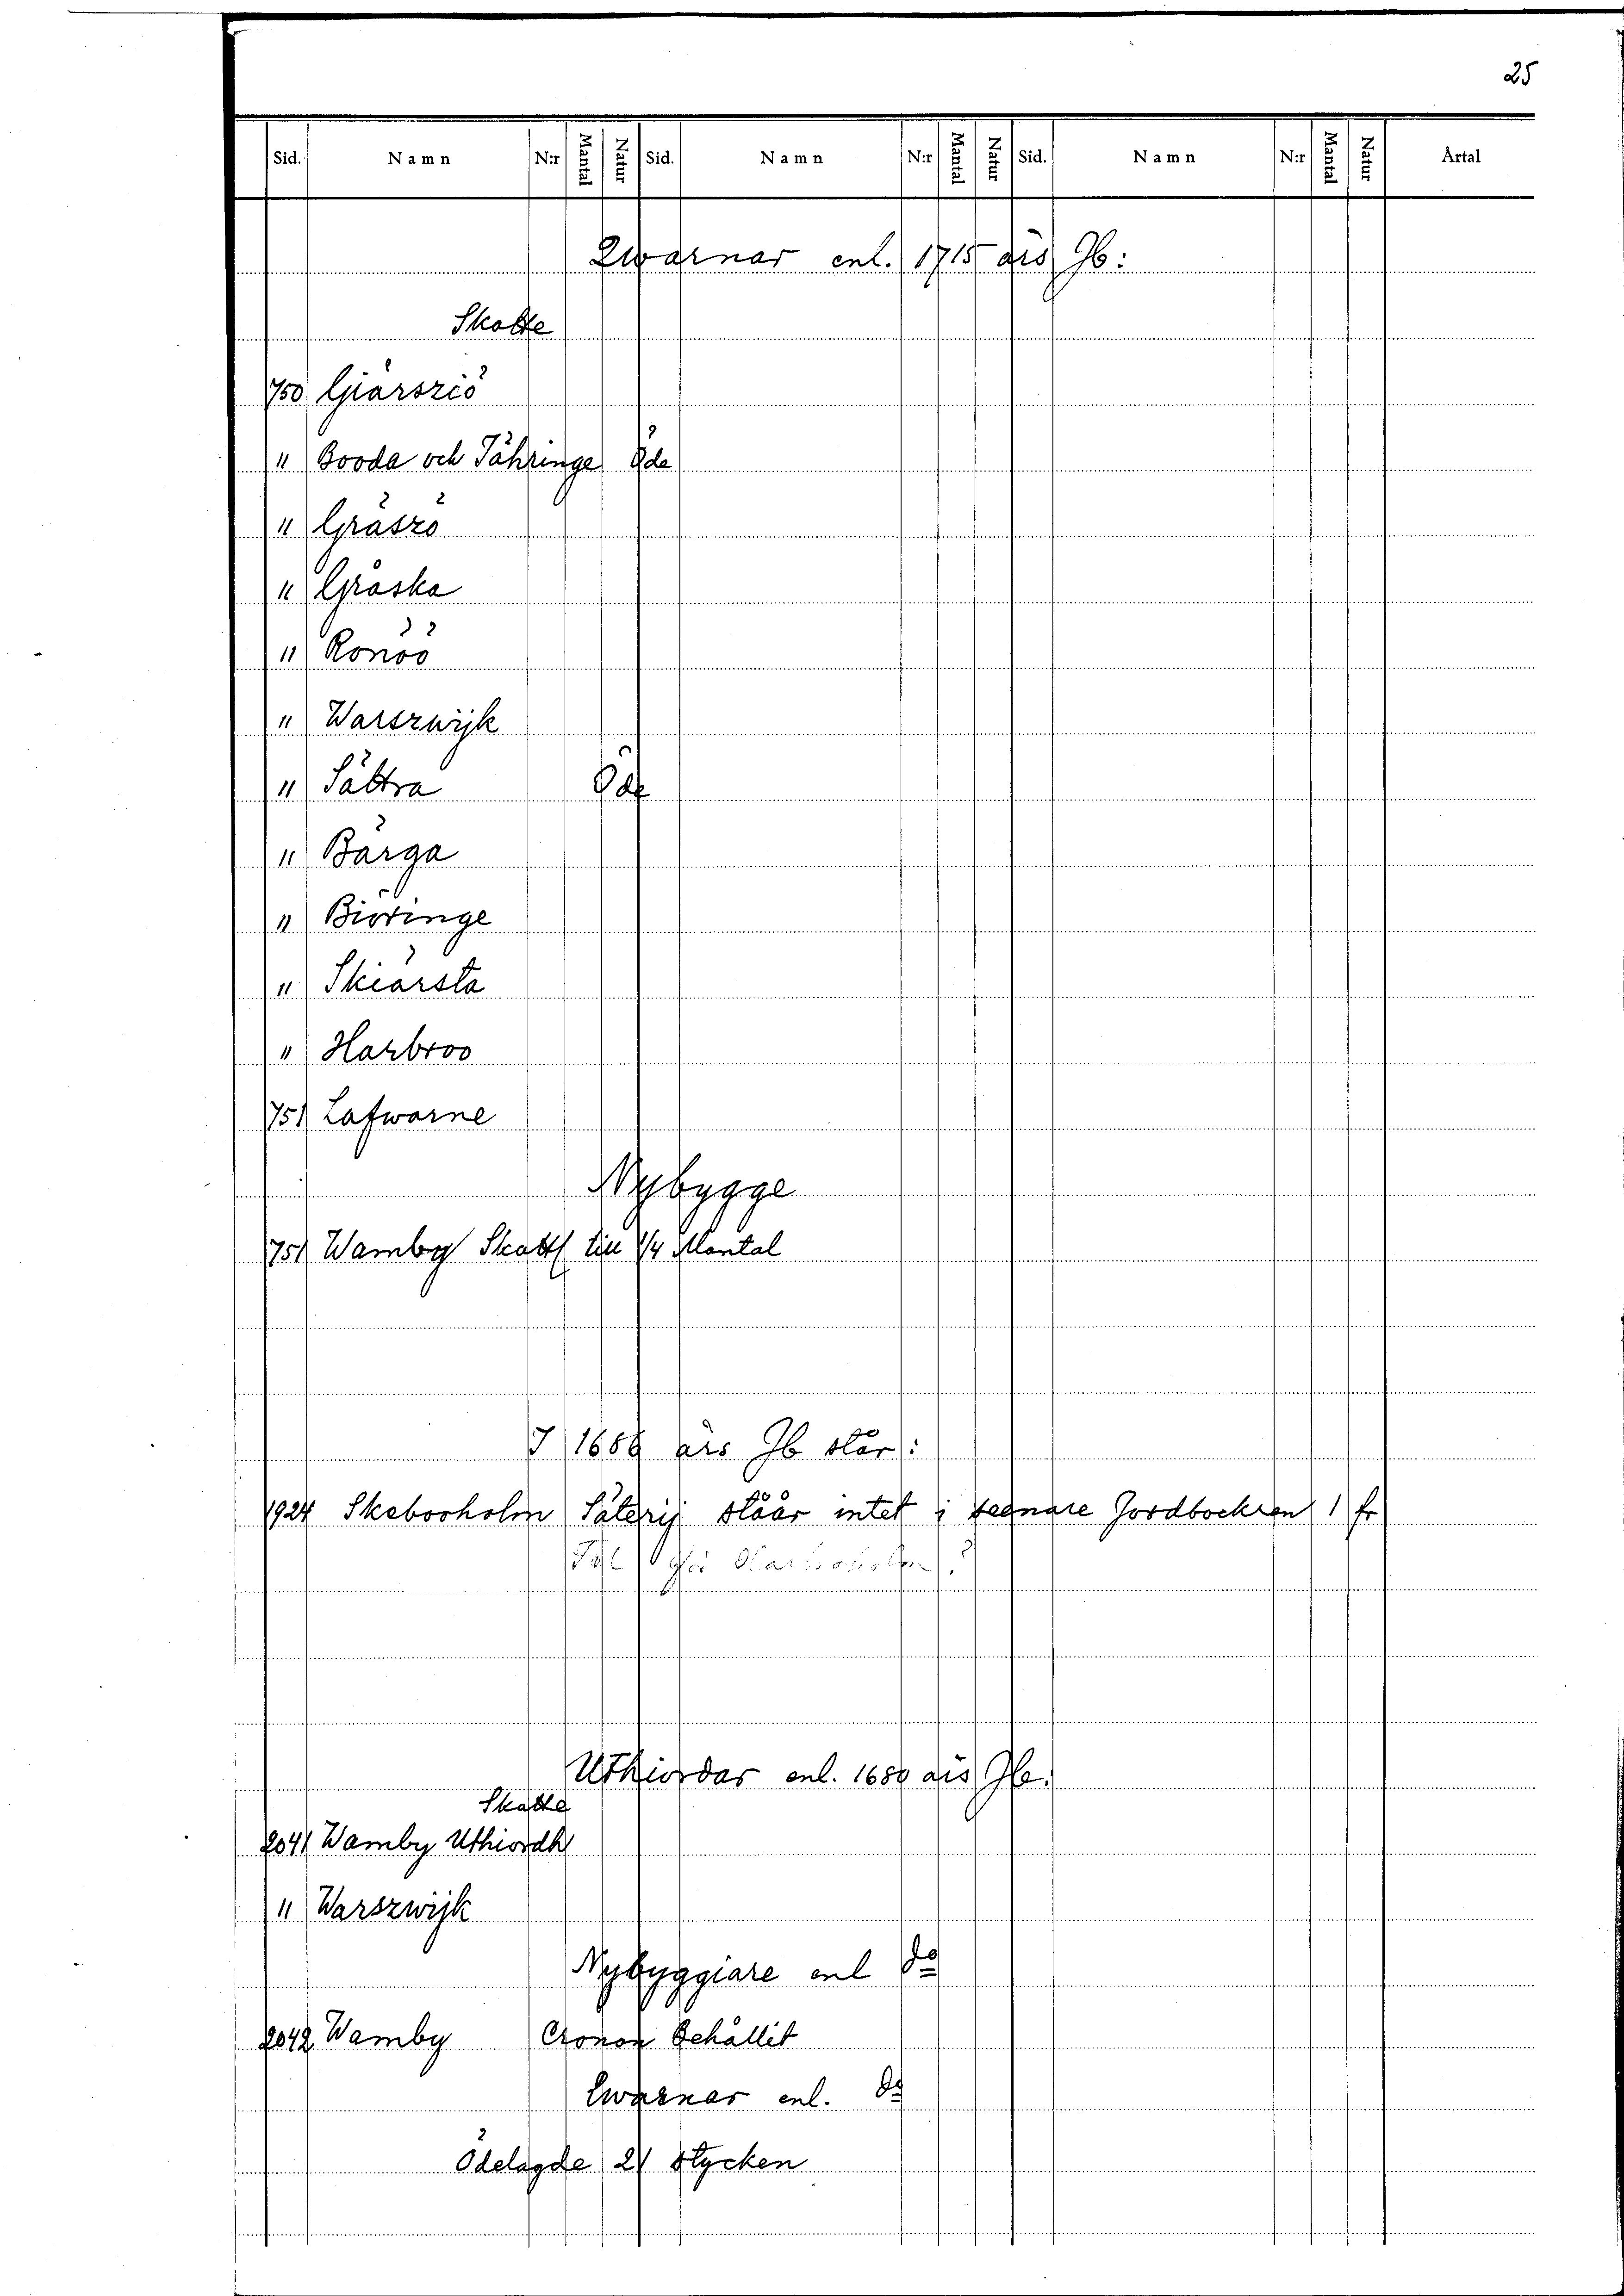 25
Sid. Namn N:r Mantal Natur Sid. Namn N:r Mantal Natur Sid. Namn N:r Mantal Natur Årtal
Qwarnar enl. 1715 års Jb:
Skatte
750 Giärsziö
" Booda och Tähringe Öde
" Gräszö
" Gråska
" Rönöö
" Warszwijk
" Sättra Öde
" Bärga
" Biöringe
" Skiärsta
" Harbroo
751 Lafwarne
Nybygge
751 Wamby Skatt till 1/4 Mantal
I 1686 års Jb står:
1924 Skebooholm Säterij ståår intet i seenare Jordbockren 1 fr
för Harbroholm?
Uthiordar enl. 1680 års Jb.
Skatte
2041 Wamby Uthiordh
" Warszwijk
Nybyggiare enl do
2042 Wamby Cronon behållit
Qwarnar enl. do
Ödelagde 21 stycken